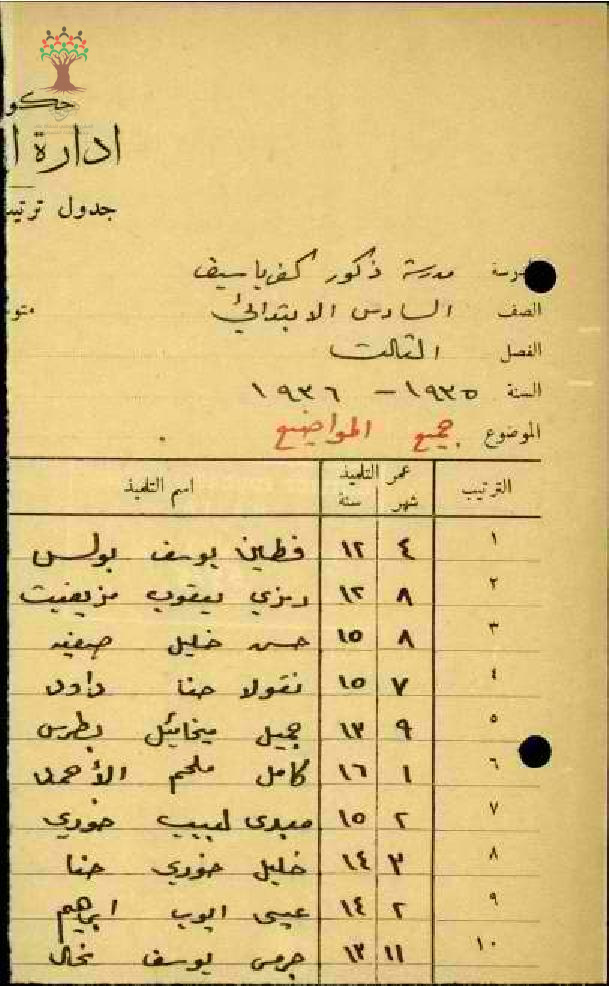 حكو
ادارة ا
جدول ترتيب
مدرسة ذكور كفرياسيف
الصف السادس الابتدائي
الفصل الثالث
السنة ١٩٣٥ - ١٩٣٦
الموضوع جميع المواضيع
الترتيب عمر التلميذ اسم التلميذ
شهر سنة
١ ٤ ١٢ فطين يوسف بولس
٢ ٨ ١٢ رمزي يعقوب
٣ ٨ ١٥ حسن خليل
٤ ٧ ١٥ نقولا حنا داود
٥ ٩ ١٣ جميل ميخائيل بطرس
٦ ١ ١٦ كامل ملحم
٧ ٢ ١٥ لبيب خوري
٨ ٣ ١٤ خليل خوري حنا
٩ ٢ ١٤ عيسى ايوب ابراهيم
١٠ ١١ ١٣ جرمس يوسف نحال